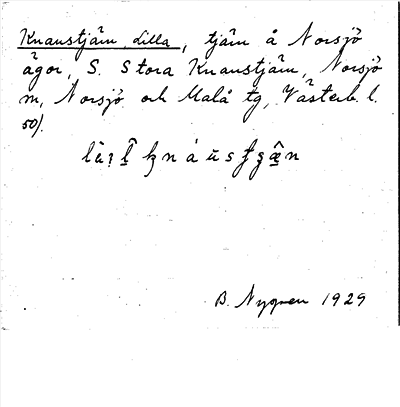 Knaustjärn, Lilla, tjärn å Norsjö
ägor, S. Stora Knaustjärn, Norsjö
sn, Norsjö och Malå tg, Västerb. l.
50/.
B. Nygren 1929